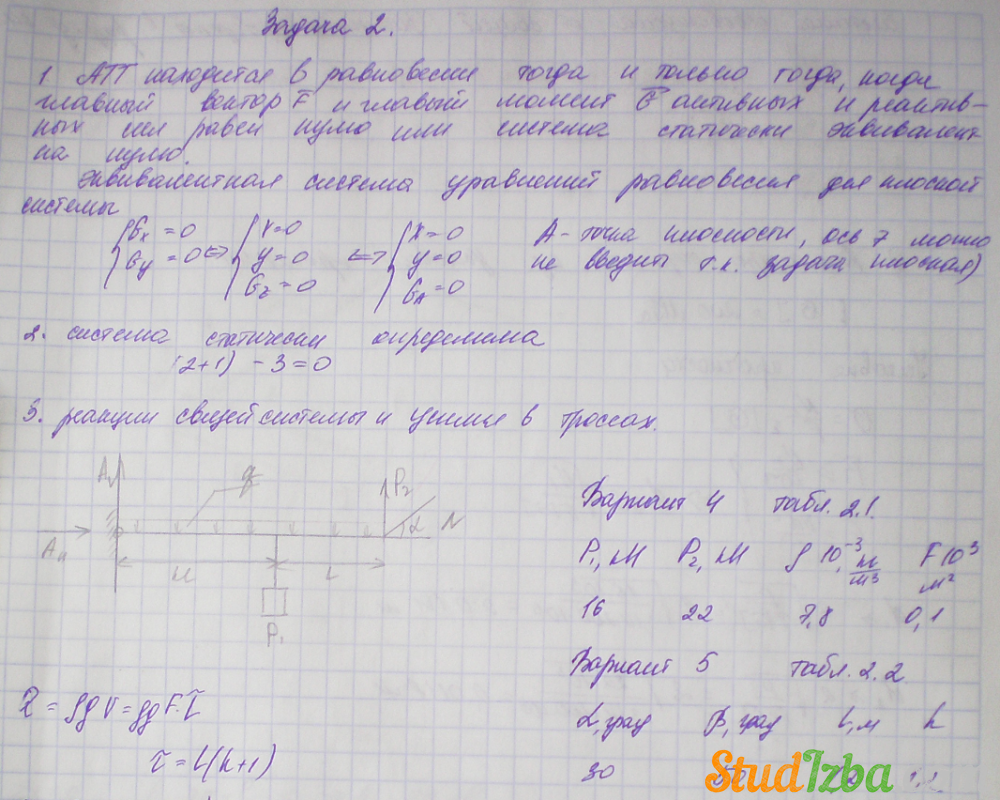 Задача 2.
1. АТТ находится в равновесии тогда и только тогда, когда
главный вектор F и главный момент G активных и реактив-
ных сил равен нулю или система статически эквивалент
на нулю.
Эквивалентная система уравнений равновесия для плоской
системы
Gx = 0 X=0 X=0 A - точка плоскости, ось z можно
Gy = 0 <=> y=0 <=> y=0 не вводить т.к. задача плоская)
Gz = 0 GA = 0
2. система статически определима
(2+1) - 3 = 0
3. реакции связей системы и усилия в троссах.
q P2
α N
L
P1
Вариант 4 табл. 2.1.
P1, кН P2, кН ρ 10^-3, кг/м3 F 10^3 м2
16 22 7,8 0,1
Вариант 5 табл. 2.2.
α, град β, град L, м k
30
= ρgV = ρgF·L
= L(k+1)
StudIzba